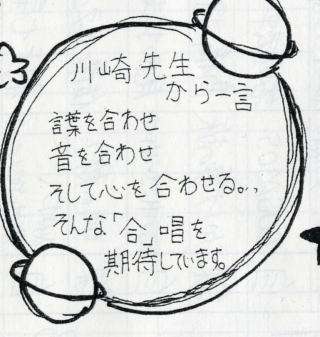 川崎先生
から一言
言葉を合わせ
音を合わせ
そして心を合わせる。、、
そんな「合」唱を
期待しています。